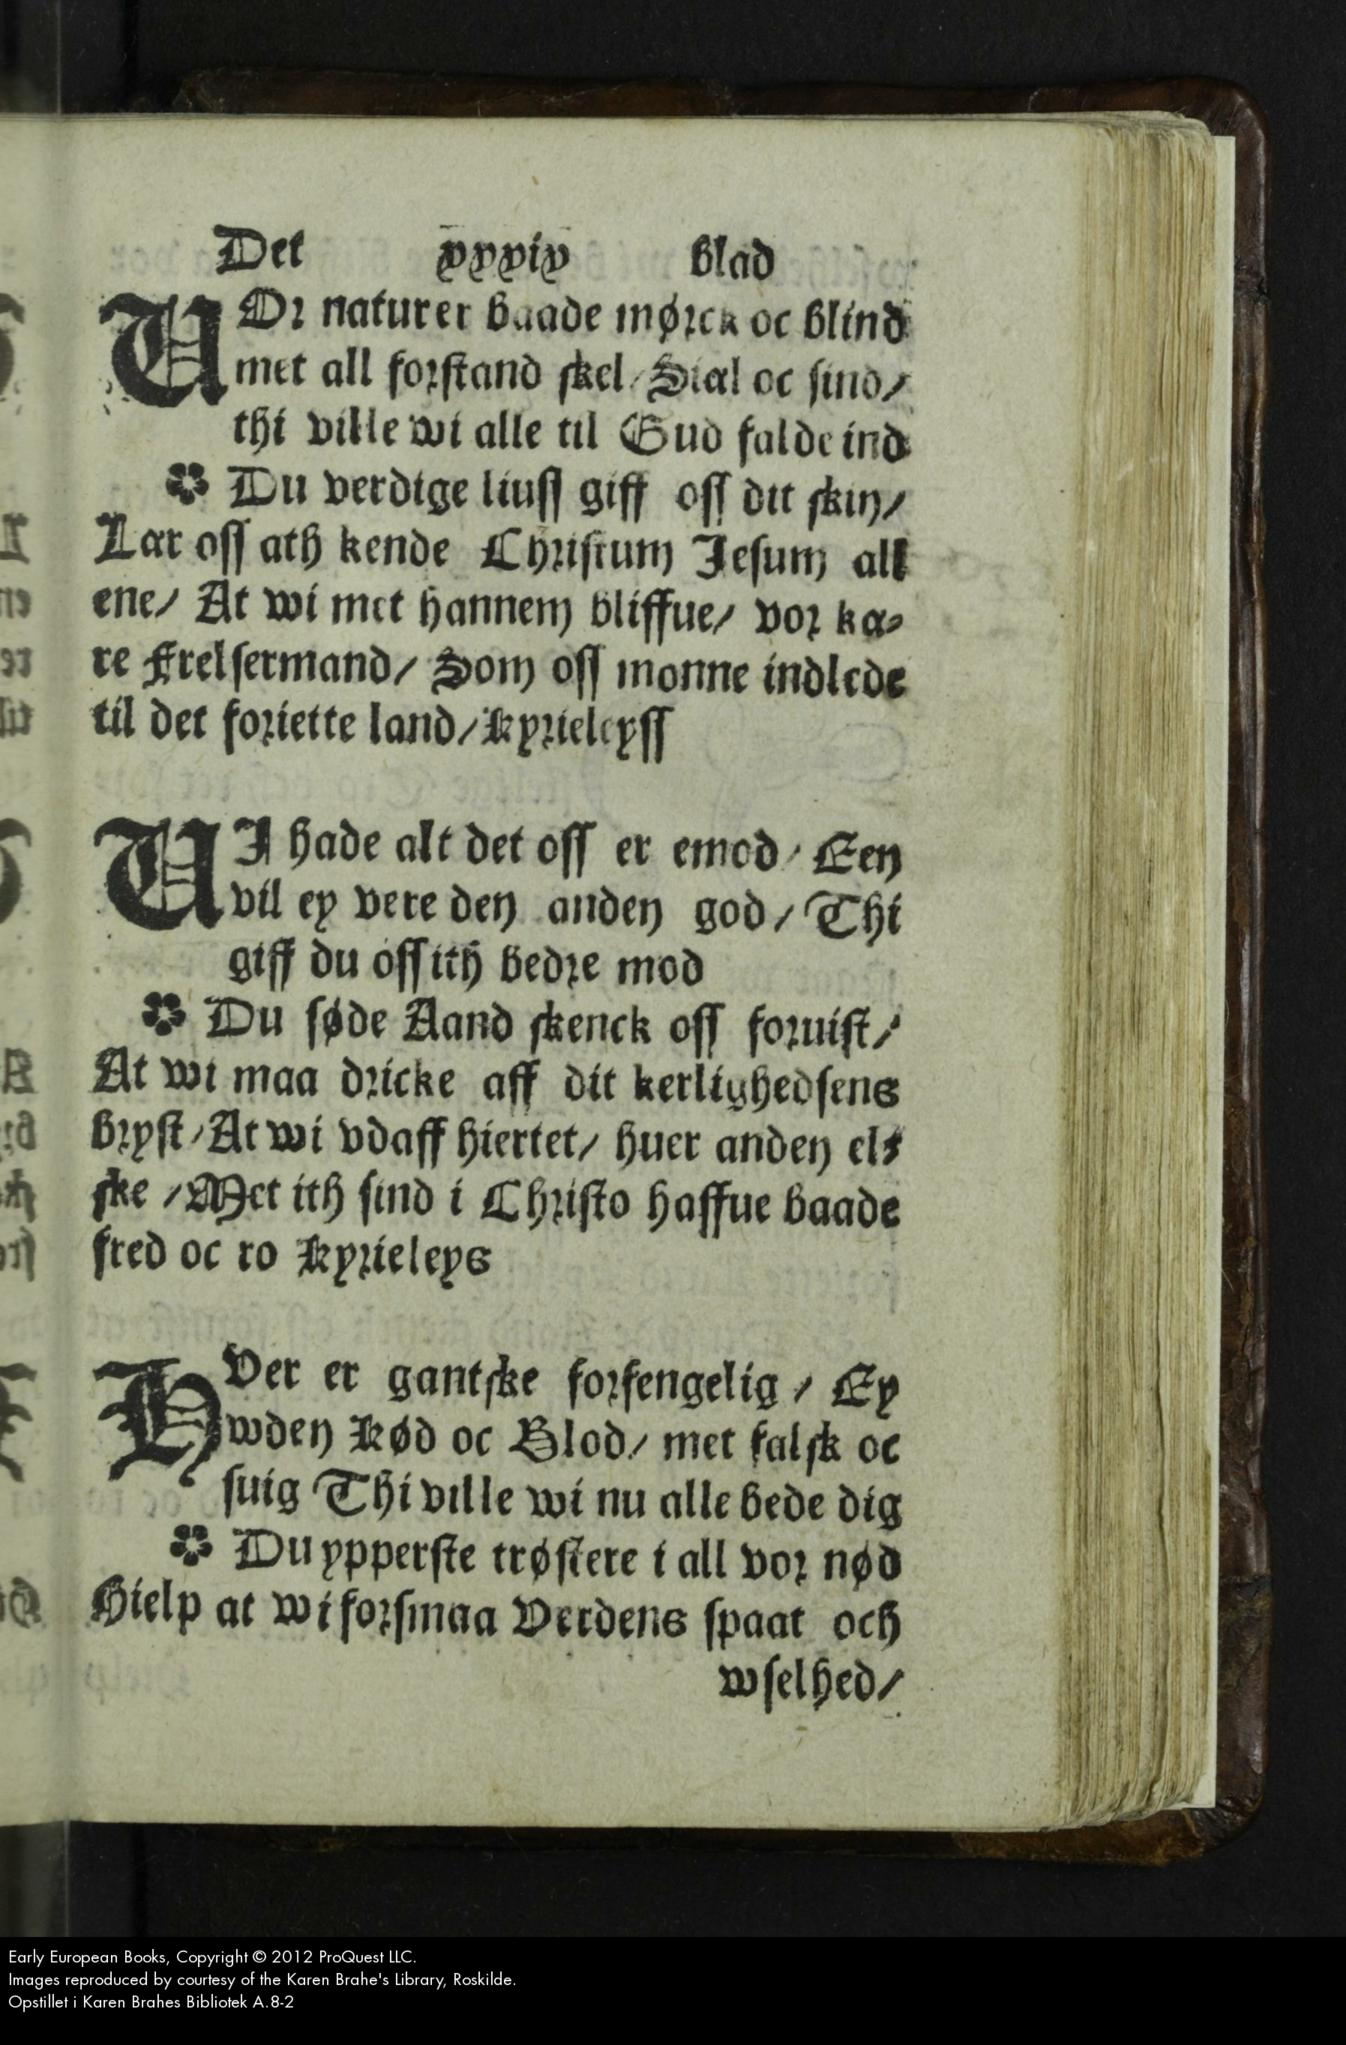 Det xxxix blad
VOr naturer baade mørck oc blind
met all forstand skel/ Siæl oc sind/
thi ville wi alle til Gud falde ind
✽ Du verdige liuss giff oss dit skin/
Lær oss ath kende Christum Jesum all
ene/ At wi met hannem bliffue/ vor kæ-
re Frelsermand/ Som oss monne indlede
til det foriette land/ kyrieleyss
VI hade alt det oss er emod/ Een
vil ey vere den anden god/ Thi
giff du oss ith bedre mod
✽ Du søde Aand skenck oss foruist/
At wi maa dricke aff dit kerlighedsens
bryst/ At wi vdaff hiertet/ huer anden el-
ske/ Met ith sind i Christo haffue baade
fred oc ro Kyrieleys
HVer er gantske forfengelig/ Ey
wden Kød oc Blod/ met falsk oc
suig Thi ville wi nu alle bede dig
✽ Du ypperste trøstere i all vor nød
Hielp at wi forsmaa Verdens spaat och
wselhed/
Early European Books, Copyright © 2012 ProQuest LLC.
Images reproduced by courtesy of the Karen Brahe's Library, Roskilde.
Opstillet i Karen Brahes Bibliotek A.8-2